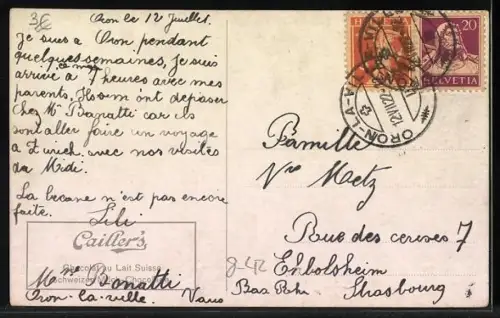 3£
Oron le 12 Juillet.
Je suis à Oron pendant
quelques semaines, je suis
arrivé à 7 heures avec mes
ce matin
parents. Ils m'ont déposer
chez Mme Bonatti car ils
sont aller faire un voyage
à Zurich avec nos visites
du Midi
La becane n'est pas encore
faite.
Lili
Cailler's
Chocolat au Lait Suisse
Schweizer Milch-Chocolade
Mme Bonatti
Oron-la-ville. Vaud
20
HELVETIA
ORON-LA-VILLE
12.VII.22
Famille
Vve Metz
Rue des cerises 7
Ekbolsheim
Bas Rhi Strasbourg
8-42